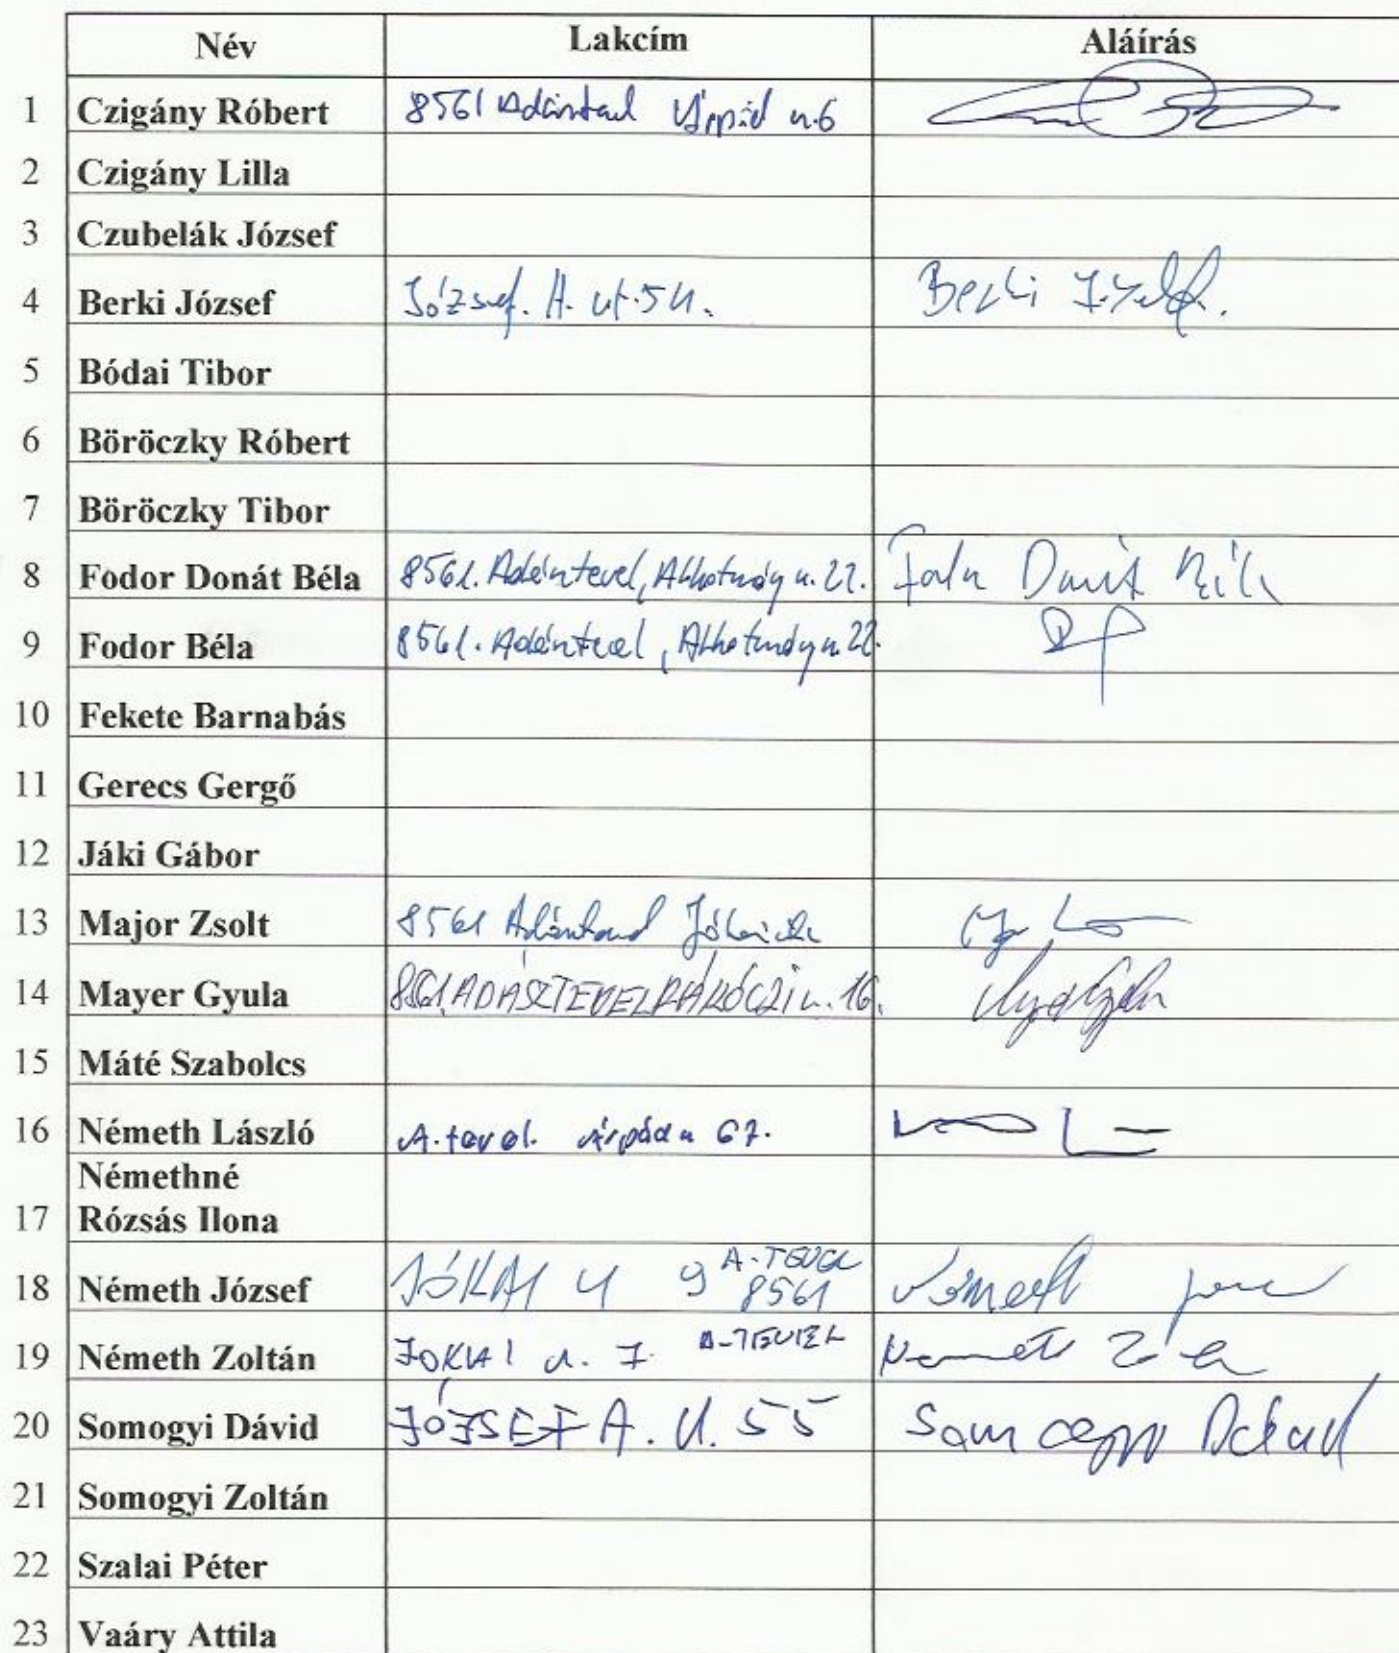 Név Lakcím Aláírás
1 Czigány Róbert 8561 Adásztevel Árpád u. 6
2 Czigány Lilla
3 Czubelák József
4 Berki József József. A. ut. 54. Berki József.
5 Bódai Tibor
6 Böröczky Róbert
7 Böröczky Tibor
8 Fodor Donát Béla 8561. Adásztevel, Alkotmány u. 22. Fodor Donát Béla
9 Fodor Béla 8561. Adásztevel, Alkotmány u. 22.
10 Fekete Barnabás
11 Gerecs Gergő
12 Jáki Gábor
13 Major Zsolt 8561 Adásztevel Jókai
14 Mayer Gyula 8561 ADÁSZTEVEL RÁKÓCZI u. 16.
15 Máté Szabolcs
16 Németh László A.tevel. Árpád u 67.
Némethné
17 Rózsás Ilona
18 Németh József JÓKAI U 9 A-TEVEL 8561 Németh
19 Németh Zoltán JOKAI u. 7. A-TEVEL Németh
20 Somogyi Dávid JÓZSEF A. U. 55 Somogyi Dávid
21 Somogyi Zoltán
22 Szalai Péter
23 Vaáry Attila